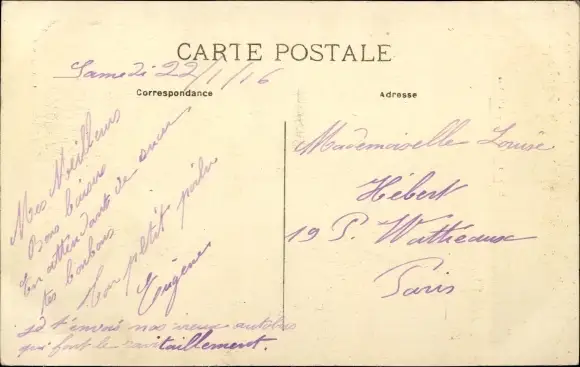 CARTE POSTALE
Samedi 22/1/16
Correspondance
Adresse
Mes Meilleurs
Bons baisers
En attendant de sucer
tes bonbons
Ton petit poilu
Eugène
je t'envois nos vieux autobus
qui font le ravitaillement.
Mademoiselle Louise
Hébert
19 P. Wathéaux
Paris